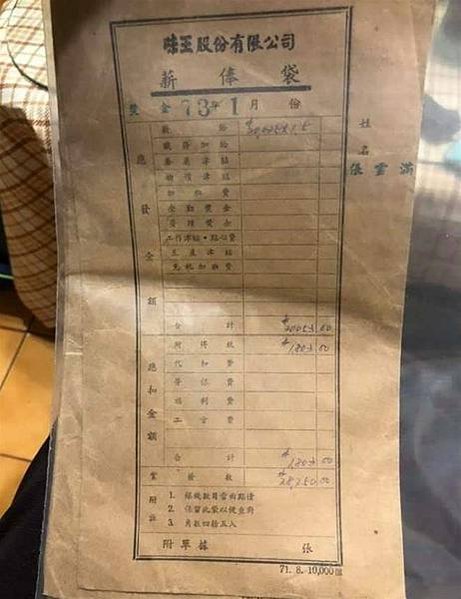 味王股份有限公司
薪俸袋
獎金 73年1月份
姓名
張雲滿
應發金額
給
職務加給
物價津貼
加班費
全勤獎金
獎金
工作津貼・點心費
津貼
免稅加班費
合計 30053.00
應扣金額
所得稅 1803.00
費
勞保費
福利費
工會費
合計 1803.00
實發數 28,250.00
附註
1. 銀錢數目當面點清
2. 保留此袋以便查對
3. 角數四捨五入
附單據 張
71. 8. 10,000個